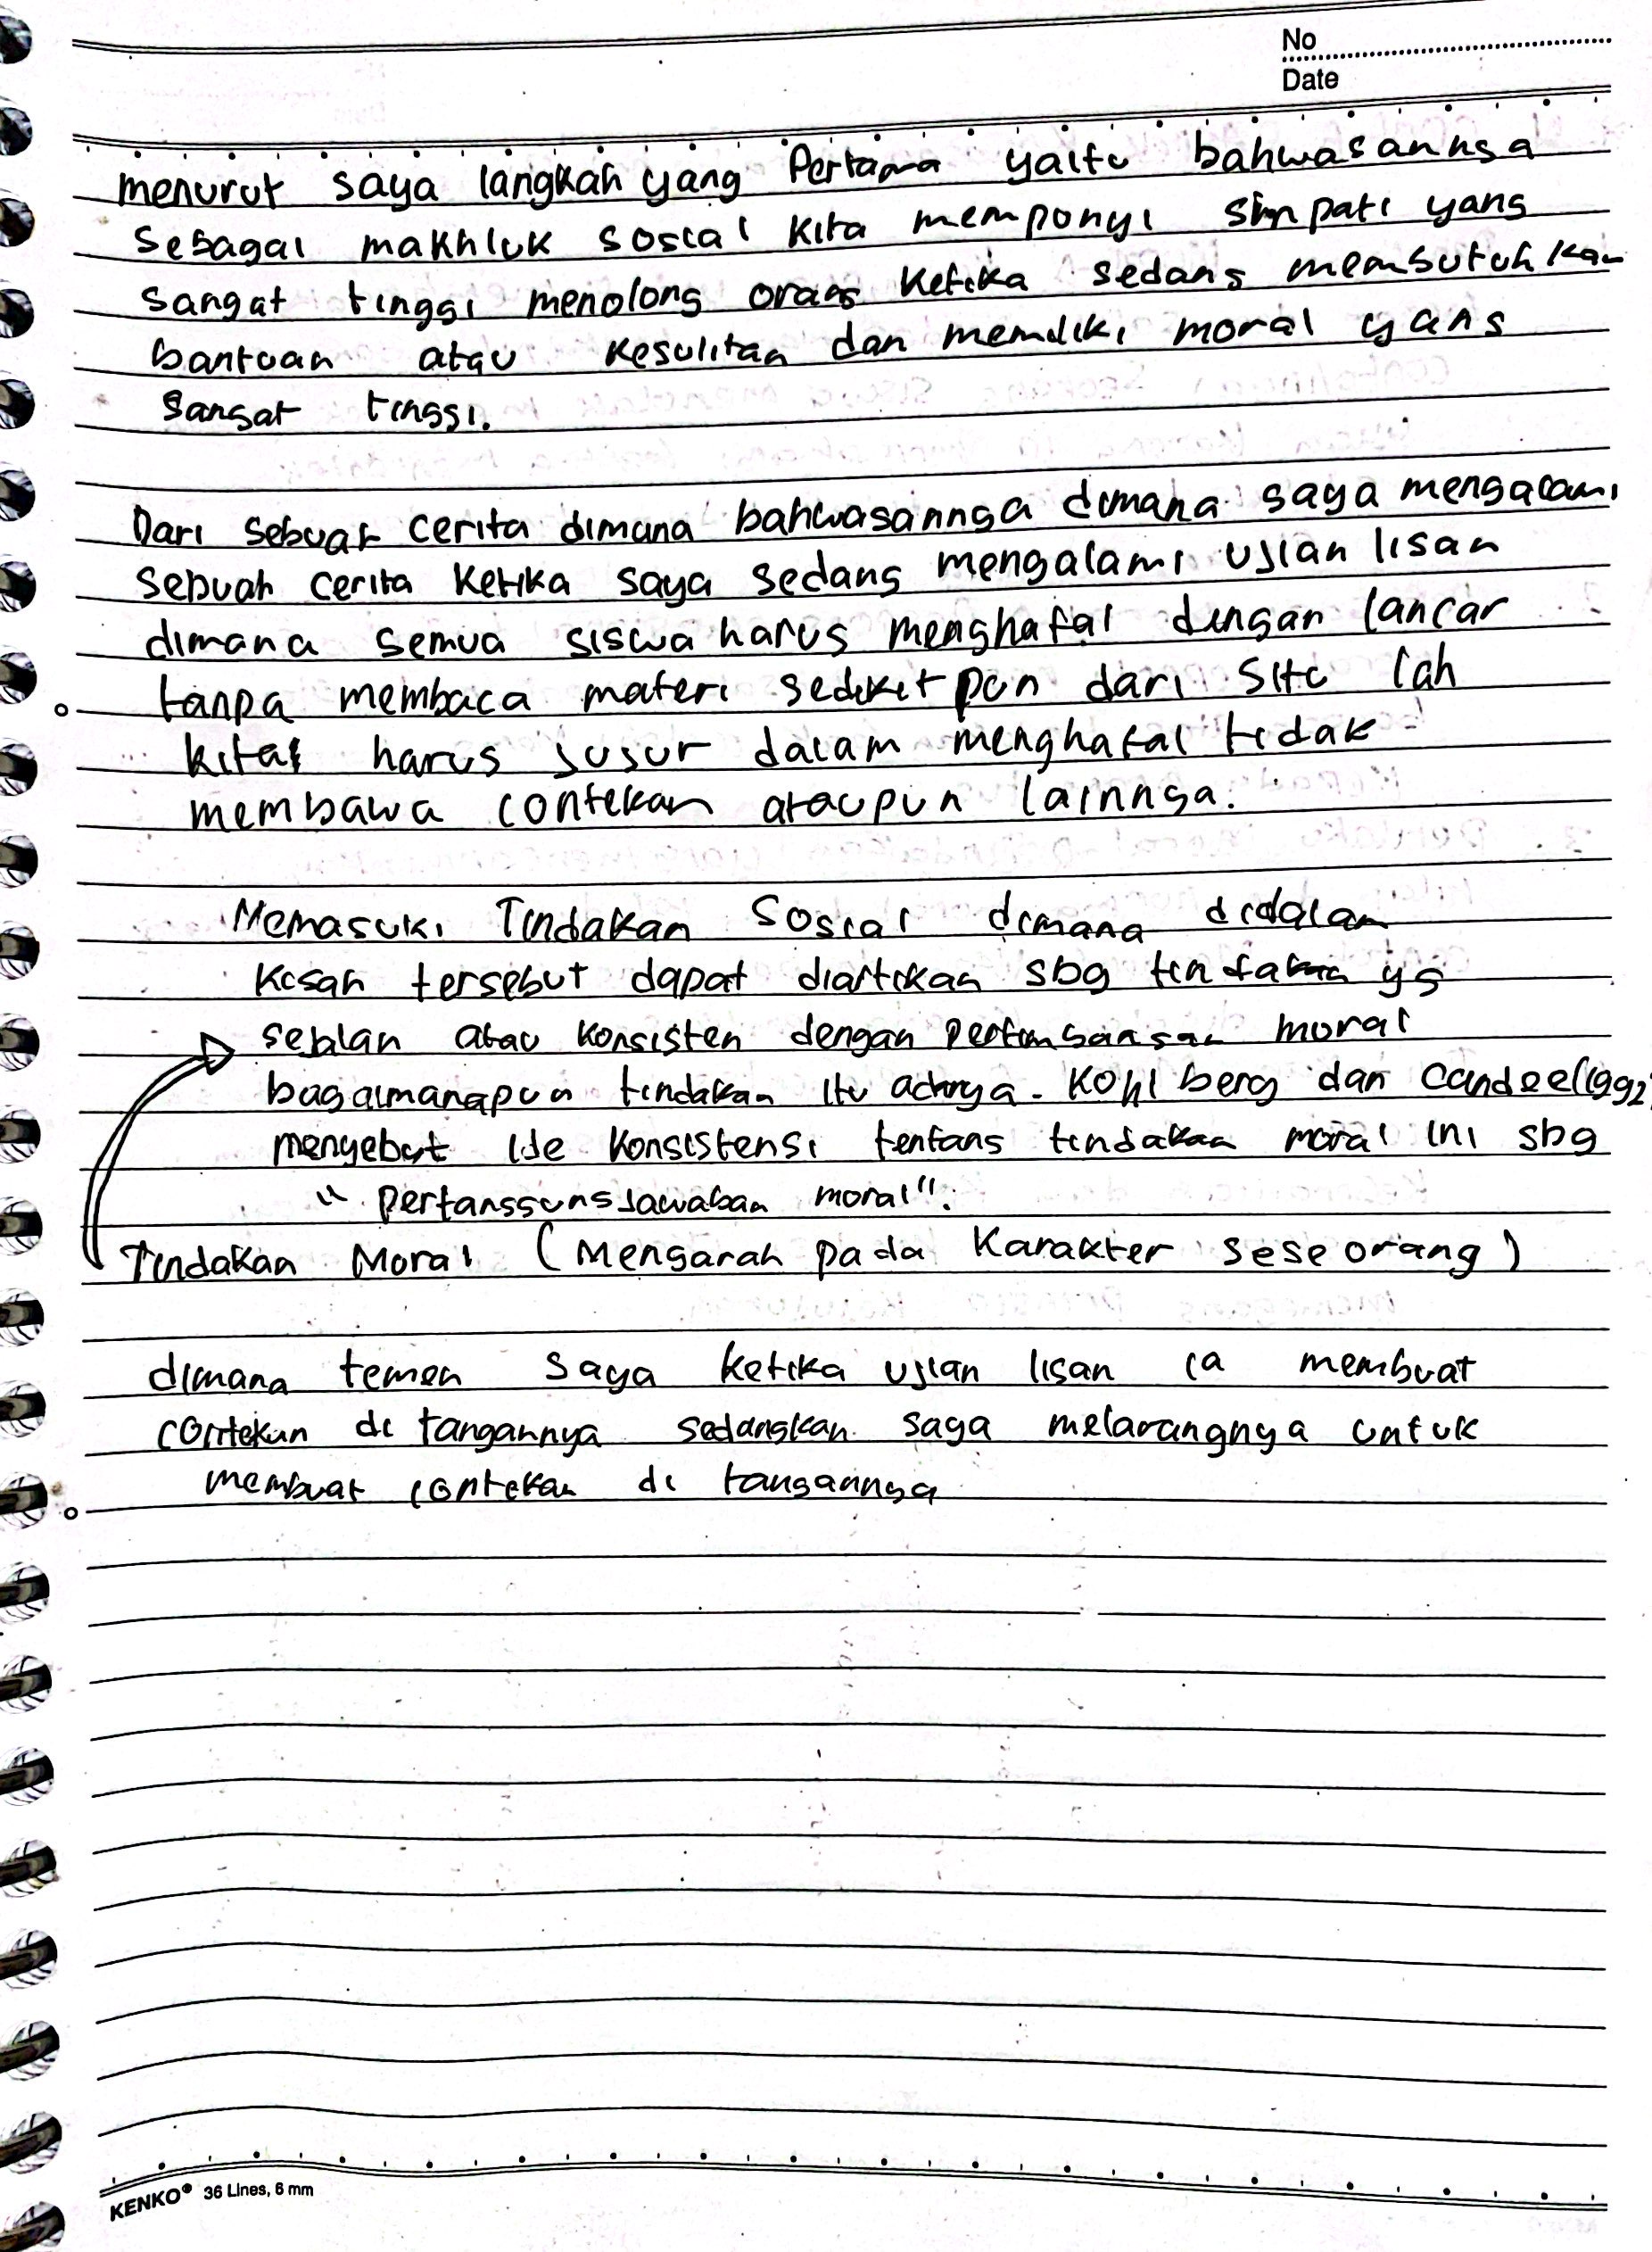 No
Date
menurut saya langkah yang Pertama yaitu bahwasannya
sebagai makhluk sosial kita memponyi simpati yang
sangat tinggi menolong orang ketika sedang membutuhkan
bantuan atau kesulitan dan memiliki moral yang
sangat tinggi.
Dari sebuah cerita dimana bahwasannya dimana saya mengalami
sebuah cerita ketika saya sedang mengalami ujian lisan
dimana semua siswa harus menghafal dengan lancar
tanpa membaca materi sedikit pun dari situ lah
kita harus jujur dalam menghafal tidak
membawa contekan ataupun lainnya.
Memasuki Tindakan Sosial dimana didalam
kisah tersebut dapat diartikan sbg tindakan yg
sejalan atau konsisten dengan pertimbangan moral
bagaimanapun tindakan itu adanya. Kohlberg dan Candee (1992)
menyebut ide konsistensi tentang tindakan moral ini sbg
" pertanggungjawaban moral".
Tindakan Moral (Mengarah pada Karakter seseorang)
dimana temen saya ketika ujian lisan ia membuat
contekan di tangannya sedangkan saya melarangnya untuk
membuat contekan di tangannya
KENKO® 36 Lines, 6 mm